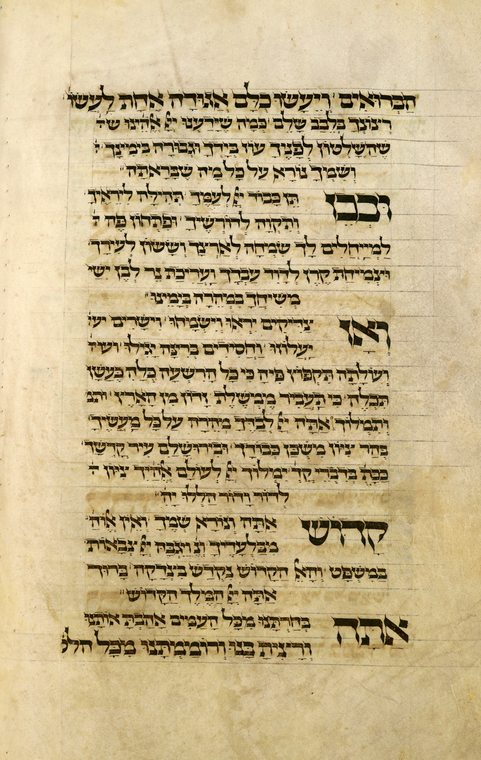 הברואים ויעשו כלם אגודה אחת לעשו
רצונך בלבב שלם כמה שידענו יי אלהינו ש
שהשלטון לפניך עוז בידך וגבורה בימינך
ושמיך נורא על כל מה שבראתה
ובכן תן כבוד יי לעמך תהילה ליראיך
ותקוה לדורשיך ופתחון פה ל
למייחלים לך שמחה לארצך וששון לעירך
וצמיחת קרן לדוד עבדך ועריכת נר לבן ישי
משיחך במהרה בימינו
ובכן צדיקים יראו וישמחו וישרים יע
יעלוזו וחסידים ברנה יגילו ועול
ועולתה תקפוץ פיה כי כל הרשעה כלה כעשן
תכלה כי תעביר ממשלת זדון מן הארץ ותמ
ותמלוך אתה יי לבדך מהרה על כל מעשיך
בהר ציון משכן כבודך ובירושלם עיר קדשך
ככת בדברי קד ימלוך יי לעולם אלהיך ציון ל
לדור ודור הללו יה
קדוש אתה ונורא שמך ואין אלוה
מבלעדיך וג ויגבה יי צבאות
במשפט והאל הקדוש נקדש בצדקה ברוך
אתה יי המלך הקדוש
אתה בחרתנו מכל העמים אהבת אותנו
ורצית בנו ורוממתנו מכל הלש